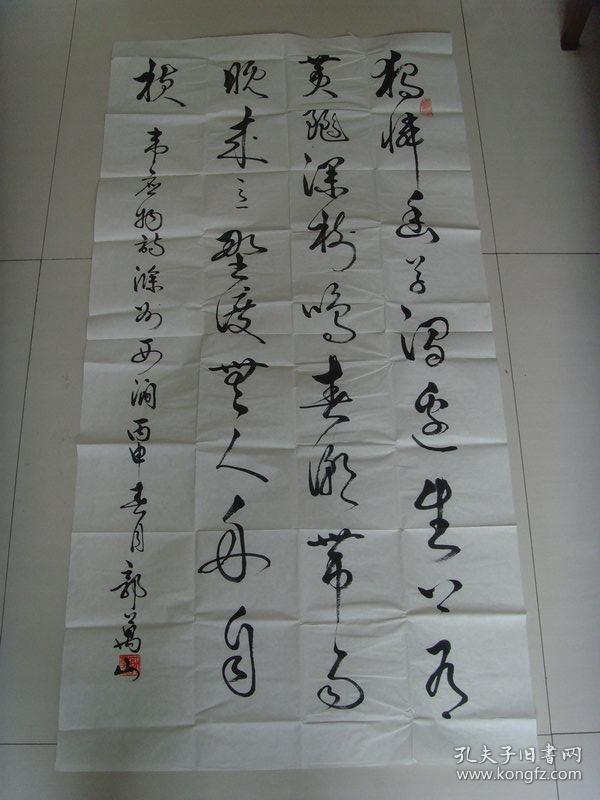 独怜幽草涧边生上有
黄鹂深树鸣春潮带雨
晚来急野渡无人舟自
横
韦应物诗滁州西涧丙申春月郭万山
孔夫子旧书网
www.kongfz.com